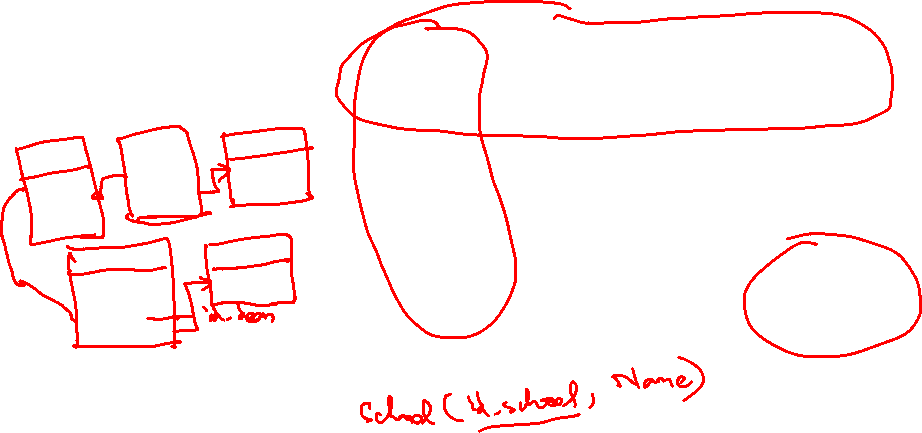 id_dean
School (id_school, Name)